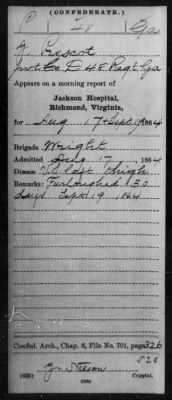 (CONFEDERATE.)
P 48 Ga
J. Prescot
Co D 48 Reg't Ga
Appears on a morning report of
Jackson Hospital,
Richmond, Virginia,
for Aug 17 & Sept 19, 1864
Brigade Wright
Admitted Aug 17, 1864
Disease thigh
Remarks: Furloughed 30
days Sept 19 1864
Confed. Arch., Chap. 6, File No. 701, page 326
520
Copyist.